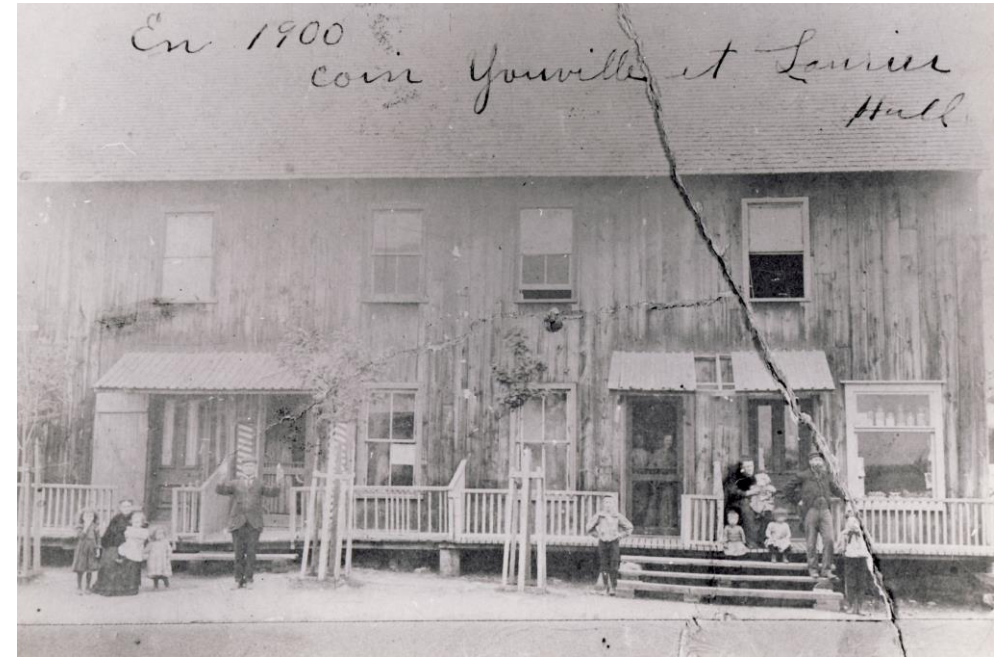 En 1900
coin Youville et Laurier
Hull